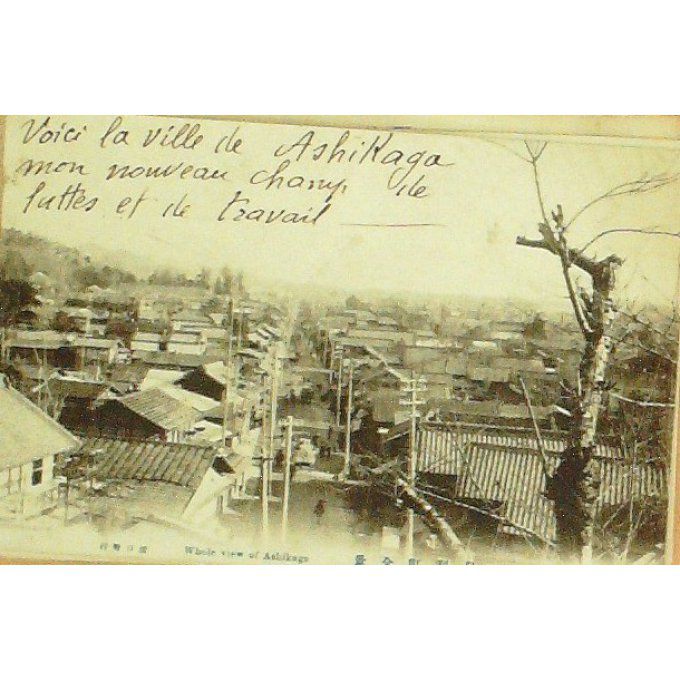 Voici la ville de Ashikaga
mon nouveau champ de
luttes et de travail
Whole view of Ashikaga